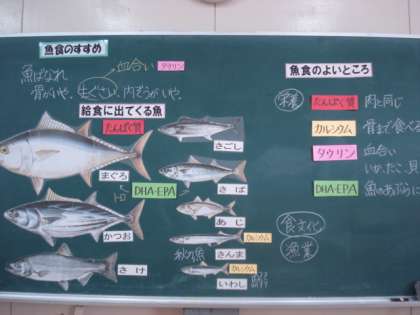 魚食のすすめ
血合い タウリン
魚ばなれ
骨がいや、生ぐさい、内ぞうがいや、
給食に出てくる魚
たんぱく質
まぐろ
トロ
DHA·EPA
かつお
さけ
さごし
さば
あじ
さんま
カルシウム
秋の魚
いわし
カルシウム
魚食のよいところ
栄養
たんぱく質 肉と同じ
カルシウム 骨まで食べる
タウリン 血合い
いか、たこ、貝
DHA·EPA 魚のあぶらに
食文化
漁業